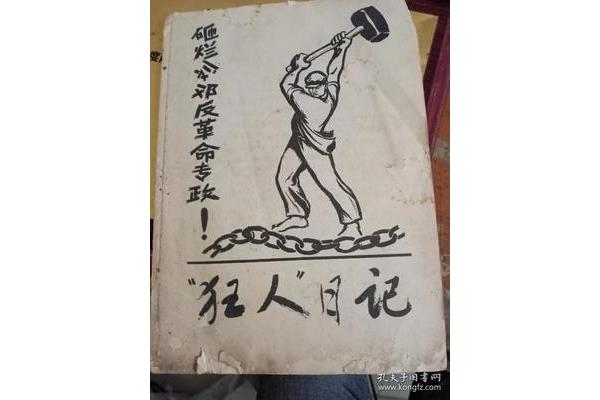 砸烂刘邓反革命专政！
“狂人”日记
孔夫子旧书网
www.kongfz.com